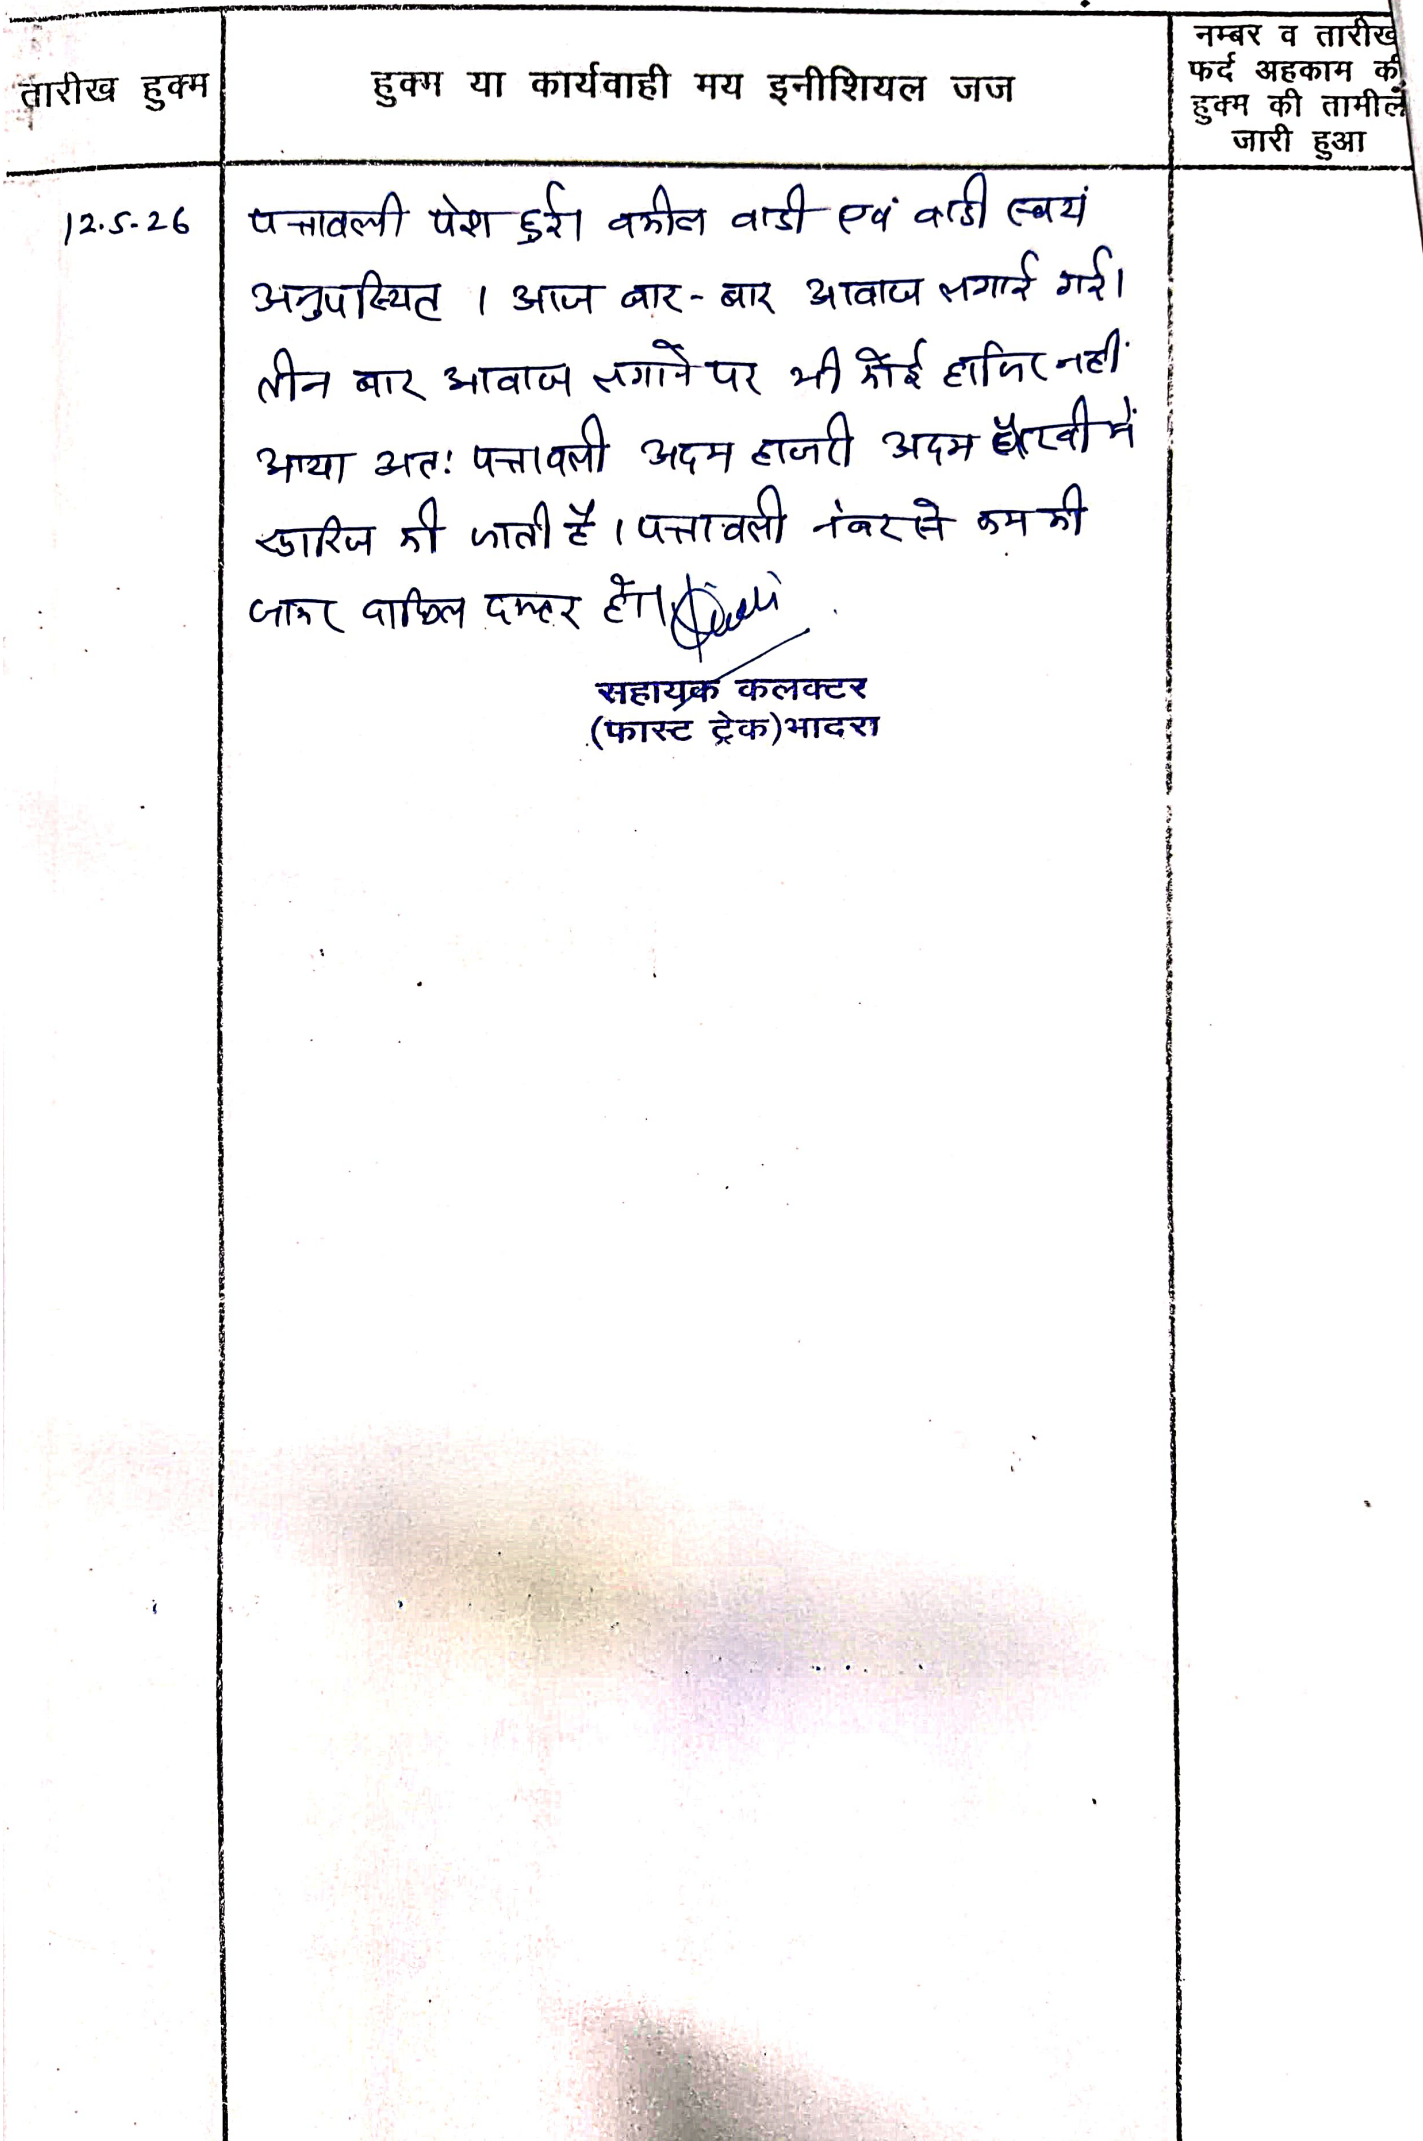 तारीख हुक्म
हुक्म या कार्यवाही मय इनीशियल जज
नम्बर व तारीख
फर्द अहकाम की
हुक्म की तामील
जारी हुआ
12.5.26
पत्रावली पेश हुई। वकील वादी एवं वादी स्वयं
अनुपस्थित । आज बार-बार आवाज लगाई गई।
तीन बार आवाज लगाने पर भी कोई हाजिर नहीं
आया अतः पत्रावली अदम हाजरी अदम पैरवी में
खारिज की जाती है । पत्रावली नंबर से कम की
जाकर दाखिल दफ्तर हो।
सहायक कलक्टर
(फास्ट ट्रेक) भादरा